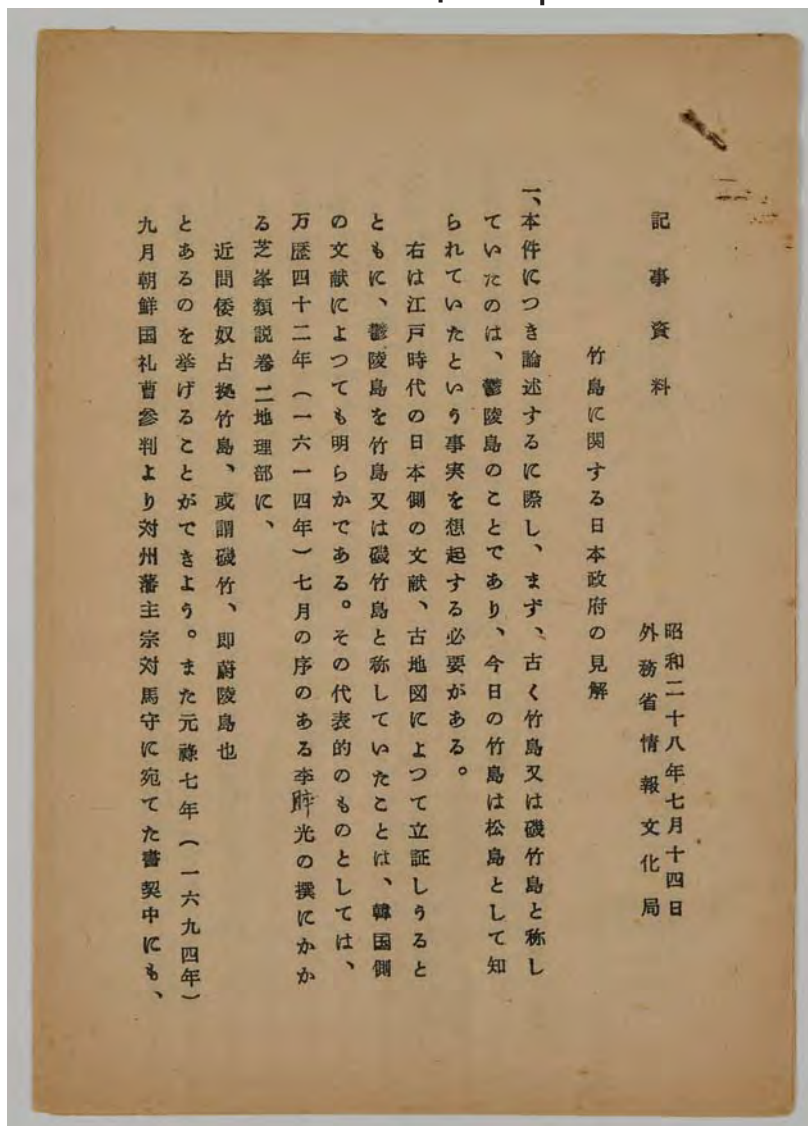 記事資料
昭和二十八年七月十四日
外務省情報文化局
竹島に関する日本政府の見解
一、本件につき論述するに際し、まず、古く竹島又は磯竹島と称し
ていたのは、鬱陵島のことであり、今日の竹島は松島として知
られていたという事実を想起する必要がある。
右は江戸時代の日本側の文献、古地図によつて立証しうると
ともに、鬱陵島を竹島又は磯竹島と称していたことは、韓国側
の文献によつても明らかである。その代表的のものとしては、
万歴四十二年(一六一四年)七月の序のある李睟光の撰にかか
る芝峯類説巻二地理部に、
近間倭奴占拠竹島、或謂磯竹、即蔚陵島也
とあるのを挙げることができよう。また元祿七年(一六九四年)
九月朝鮮国礼曹参判より対州藩主宗対馬守に宛てた書契中にも、